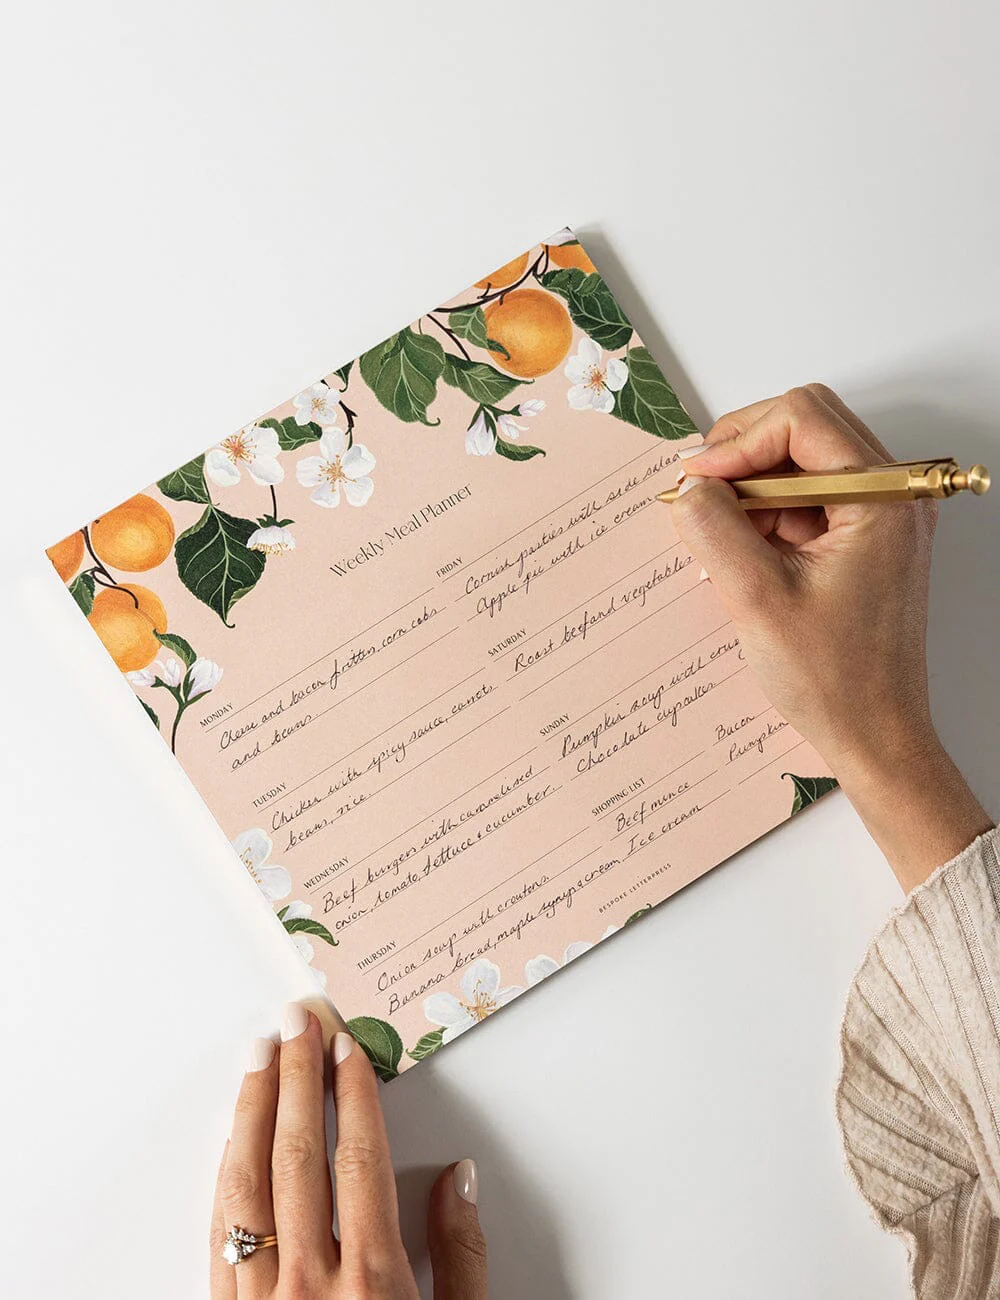 Weekly Meal Planner
MONDAY
Cheese and bacon fritters corn cobs
and beans.
TUESDAY
Chicken with spicy sauce, carrots.
beans, rice.
WEDNESDAY
Beef burgers with caramelised
onion, tomato, lettuce & cucumber.
THURSDAY
Onion soup with croutons.
Banana bread, maple syrup & cream.
FRIDAY
Cornish pasties with side salad
Apple pie with ice cream
SATURDAY
Roast beef and vegetables
SUNDAY
Pumpkin soup with
Chocolate cupcakes.
SHOPPING LIST
Beef mince
Bacon
Ice cream
Pumpkin
BESPOKE LETTERPRESS